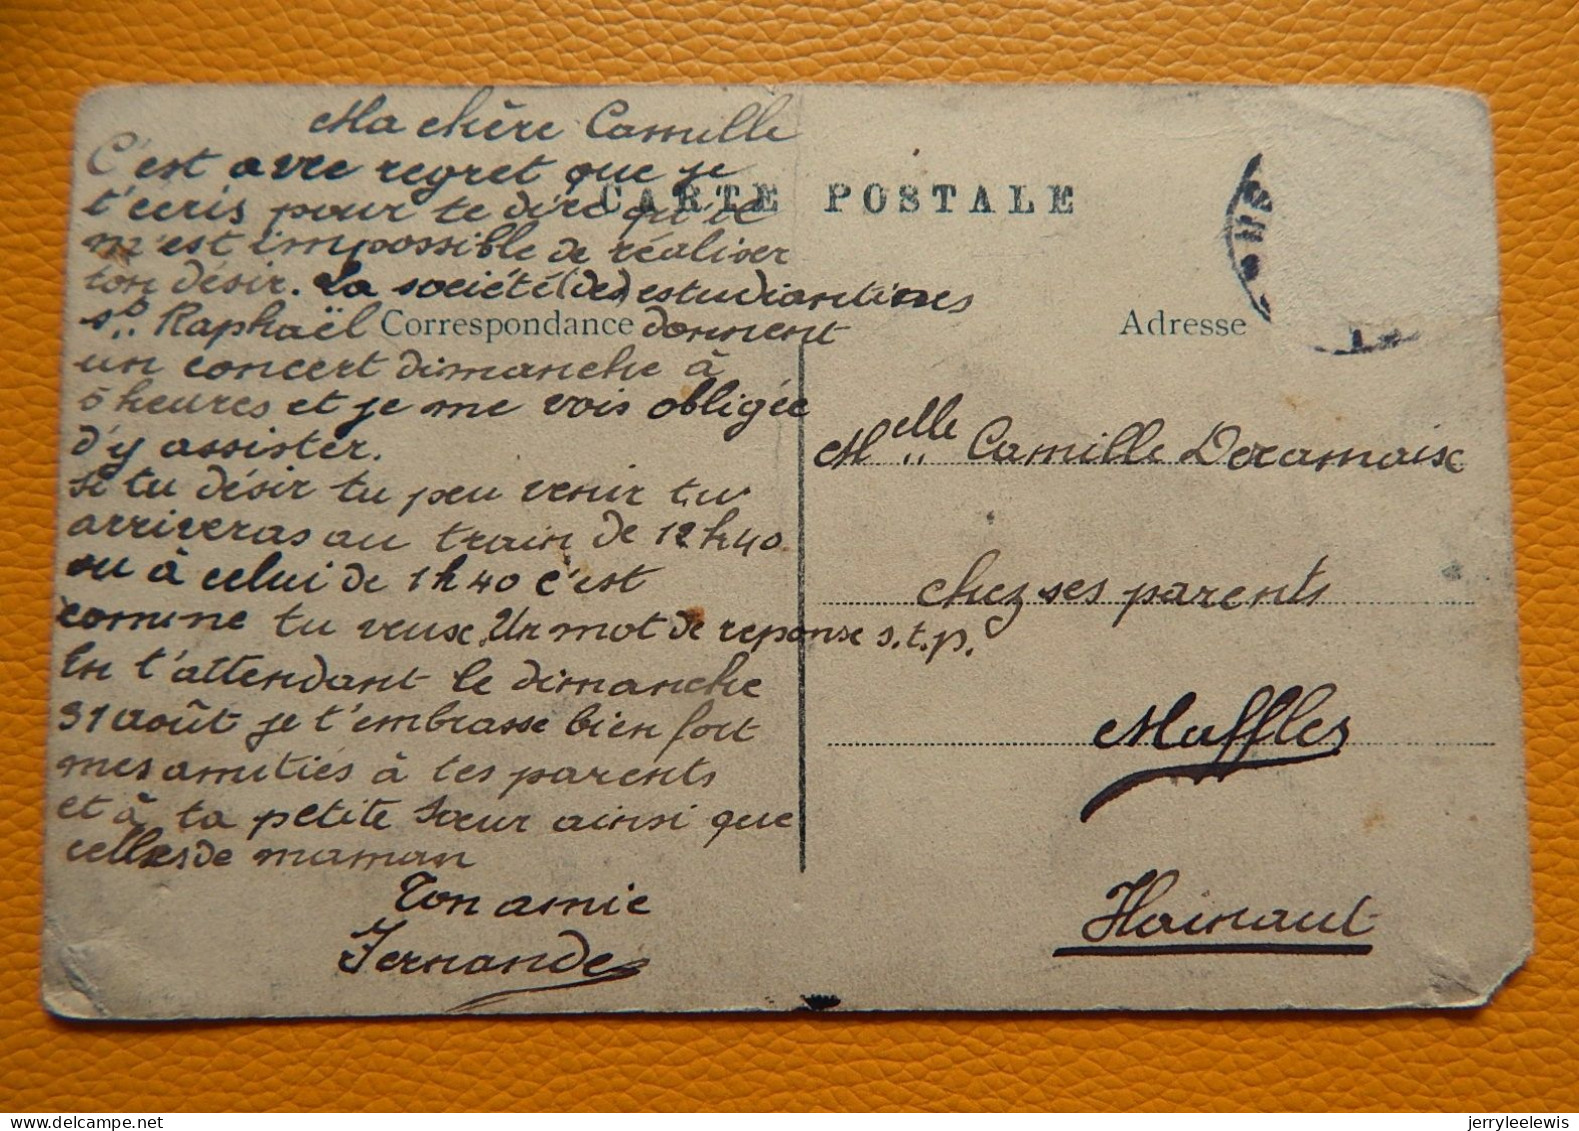 Ma chère Camille
C'est avec regret que je
t'ecris pour te dire qu'il
m'est impossible de réaliser
ton désir. La société (des) estudiantines
St. Raphaël donnent
un concert dimanche à
5 heures et je me vois obligée
d'y assister.
Si tu désir tu peu venir tu
arriveras au train de 12h40
ou à celui de 1h40 c'est
comme tu veux. Un mot de reponse s.t.p.
En t'attendant le dimanche
31 août je t'embrasse bien fort
mes amitiés à tes parents
et à ta petite sœur ainsi que
celles de maman
Ton amie
Fernande
CARTE POSTALE
Correspondance
Adresse
Melle Camille Deramaix
chez ses parents
Maffles
Hainaut
www.delcampe.net
jerryleelewis